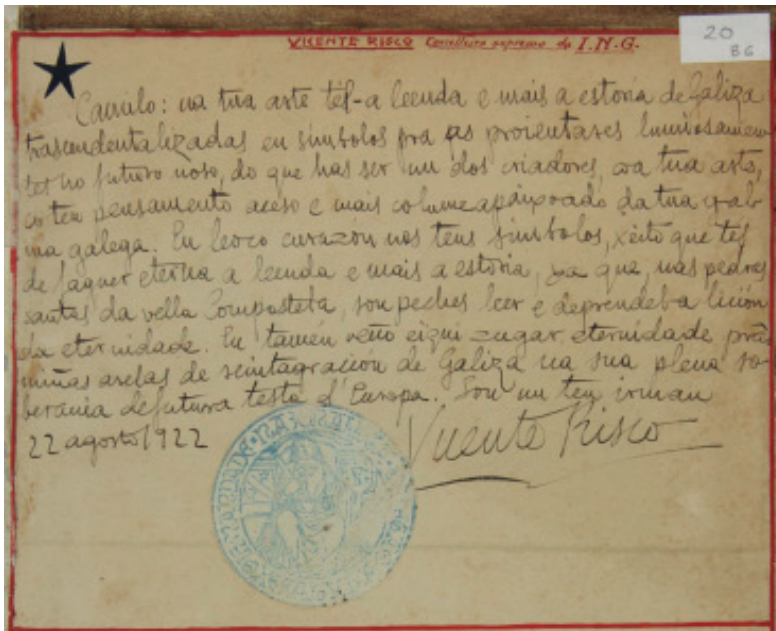 VICENTE RISCO Conselleiro supremo da I.N.G.
20
86
Camilo: na tua arte tél-a leenda e mais a estoria de Galiza
trascendentalizadas en símbolos pra as proientares luminosamen
tet no futuro noso, do que has ser un dos criadores, coa tua arte,
co teu pensamento aceso e mais co lume apaixoado da tua y-al
ma galega. Eu leoco curazon nos teus símbolos, xeito que tés
de faguer eterna a leenda e mais a estoria, xa que, nas pedras
santas da vella Compostela, soupeches leer e deprendel-a lición
da eternidade. Eu tamén veño eiquí zugar eternidade prás
miñas arelas de reintagración de Galiza na sua plena so-
beranía de futura testa d'Europa. Son un teu irman
22 agosto 1922
Vicente Risco